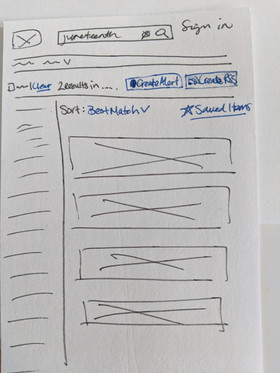 juneteenth Sign in
2 results in ..... Create Alert Create RSS
Sort: Best Match Saved Items